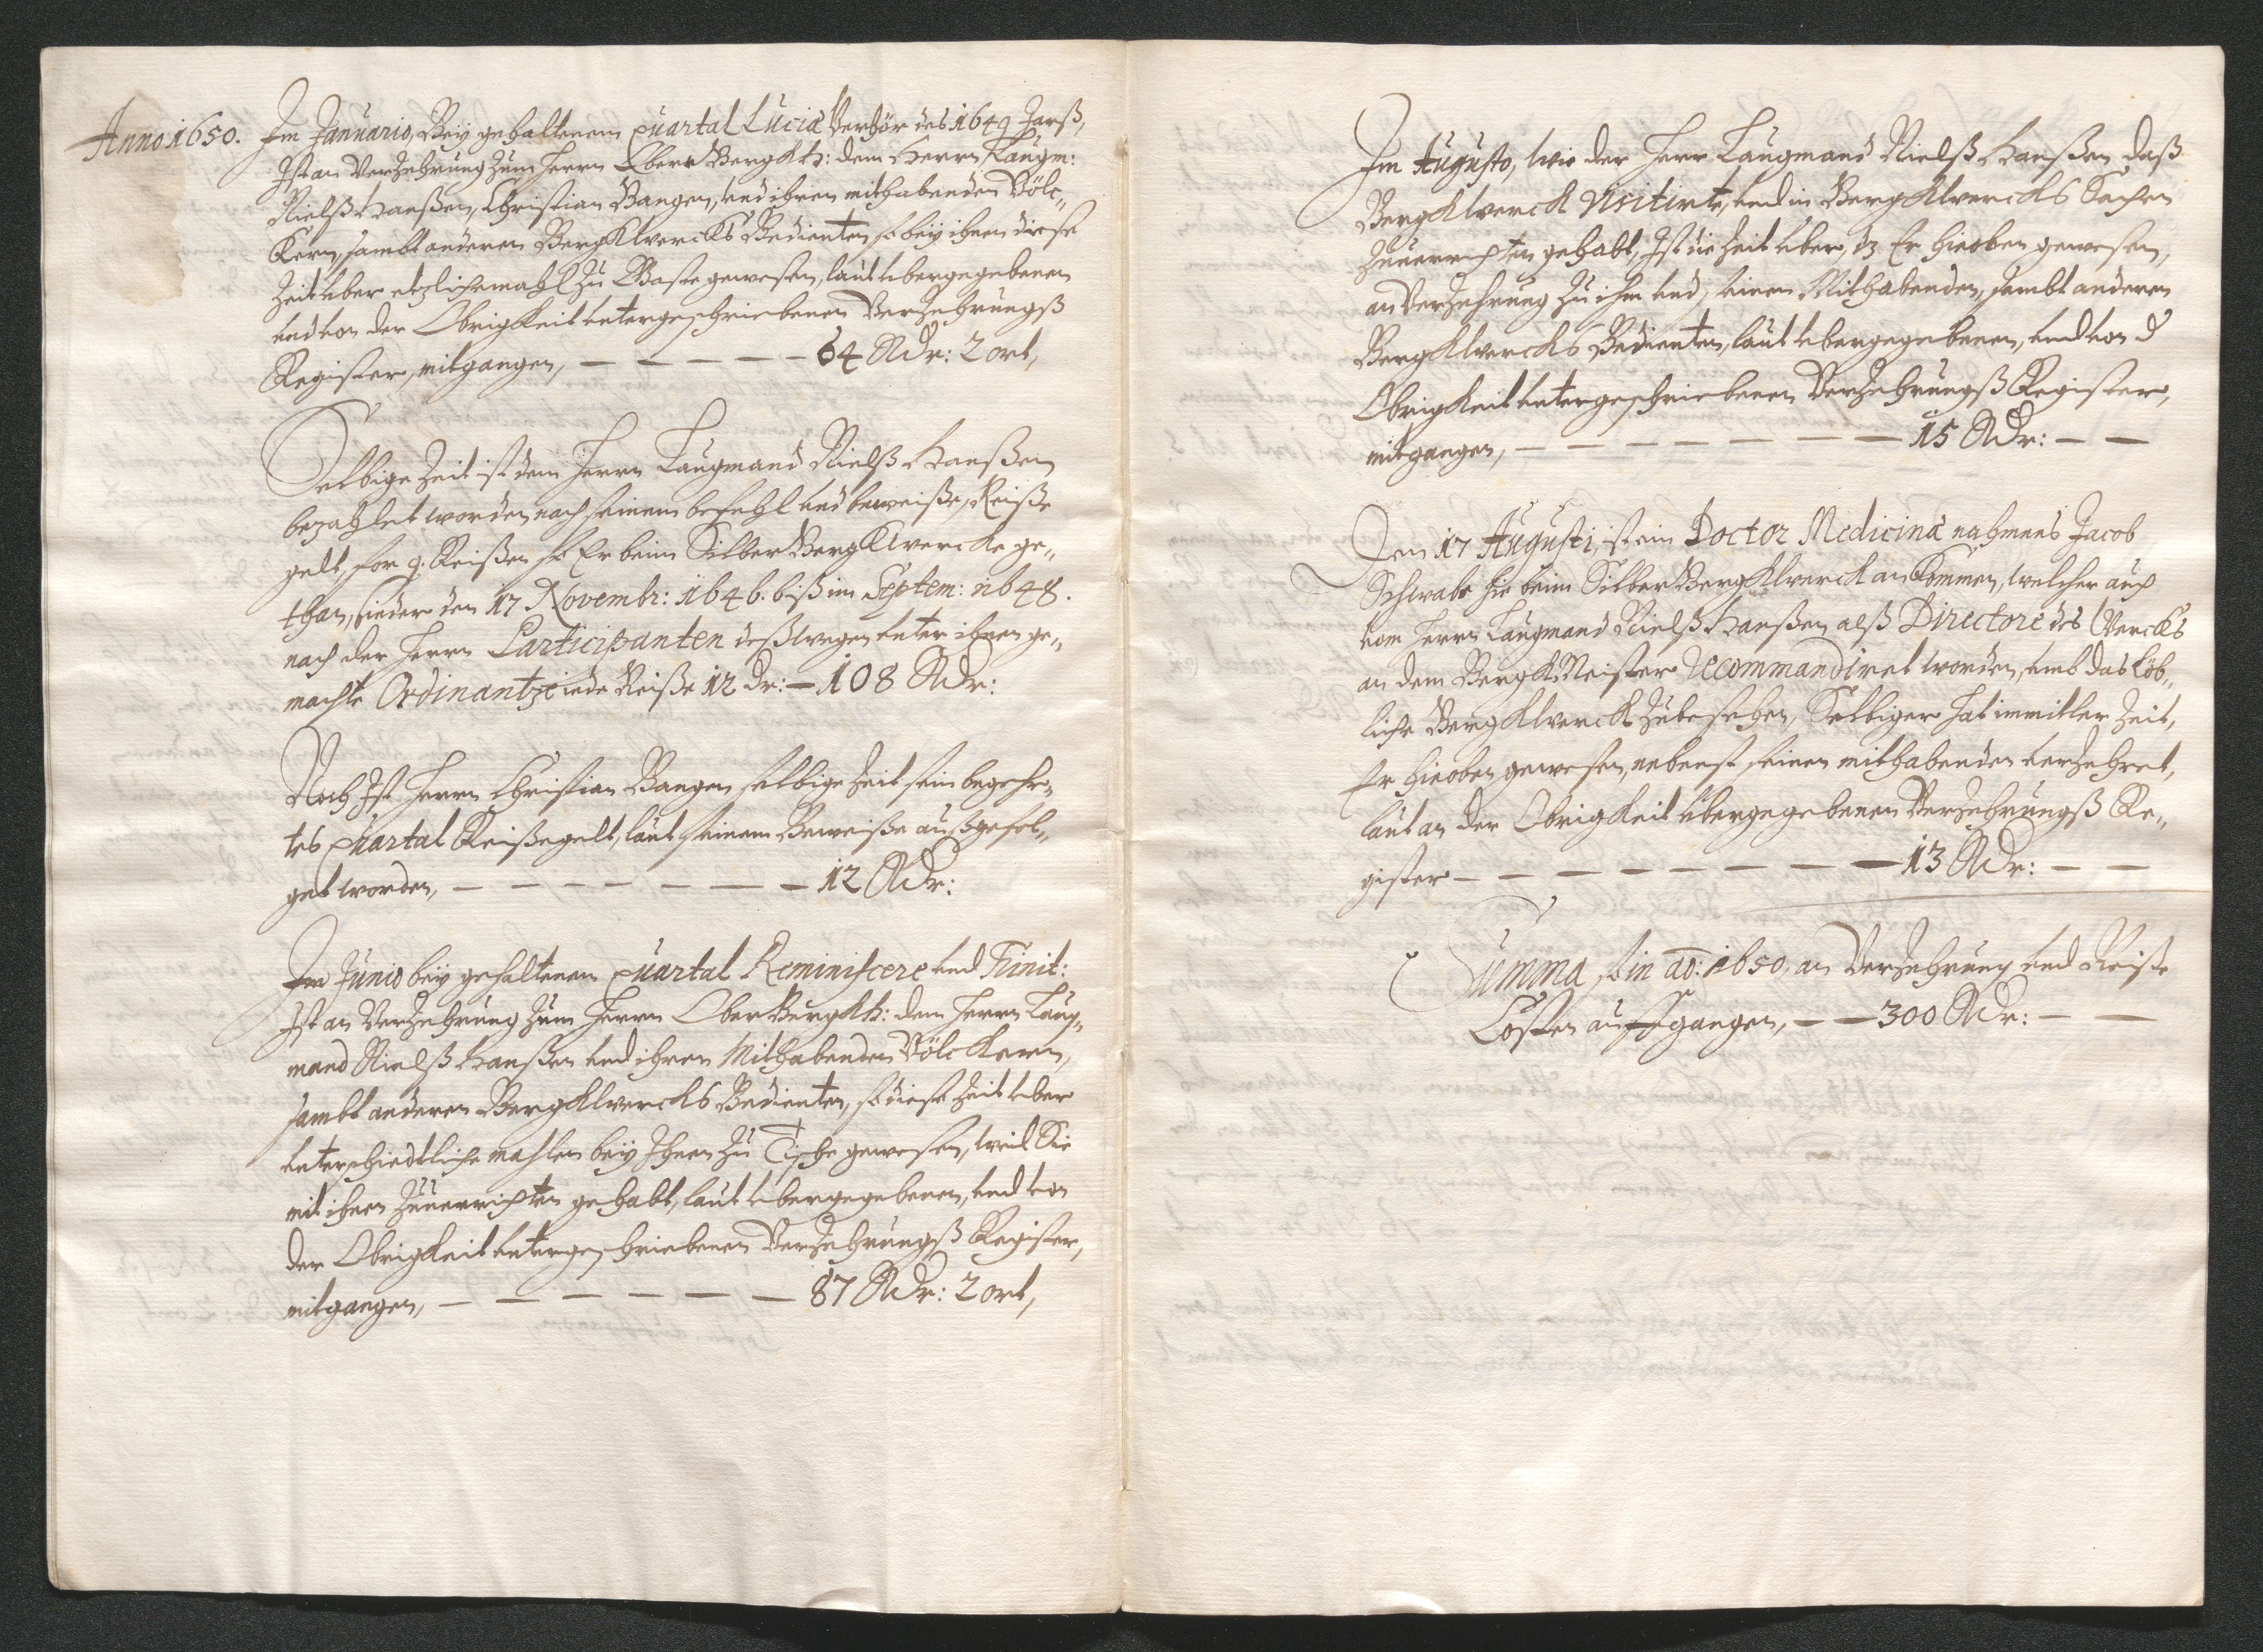 Anno 1650. Im Januario, Beÿ gehaltenem quartal Luciæ Verhör des 1649 Jarß,
Ist an Verzehrung zum Herrn Ober BergkH: dem Herrn Laugm:
Nielß Hanßen, Christian Bangen, und ihren mithabenden Völc„
kern, sambt anderen Bergkwercks Bedienten so beÿ ihnen diese
Zeit uber etzlichemahl zu Gaste gewesen, laut ubergegebenen
und von der Obrigkeit untergeschriebenen Verzehrungß
Register, mitgangen, — — — — — 64 Rdr: 2 ort,
Selbige Zeit ist dem Herrn Laugmand Nielß Hanßen
bezahlet worden, nach seinem befehl und beweiße, Reiße
gelt, for 9. Reißen so Er beim Silber Bergkwercke ge„
than, sieder den 17 Novembr: 1646. biß im Septem: 1648.
nach der Herrn Participanten deßwegen unter ihnen ge„
machte Ordinantze iede Reiße 12 dr: — 108 Rdr:
Noch Ist Herrn Christian Bangen selbige Zeit sein begehr„
tes quartal Reißegelt, laut seinem Beweiße außgefol„
get worden, — — — — — — — 12 Rdr:
Im Junio beÿ gehaltenem quartal Reminiscere und Trinit:
Ist an Verzehrung zum Herrn Ober BergkH: dem Herrn Laug„
mand Nielß Hanßen und ihren Mithabenden Völckern,
sambt anderen Bergkwercks Bedienten, so diese Zeit uber
unterschiedtliche mahlen beÿ Ihnen zu Tische gewesen, weil Sie
mit ihnen zuverrichten gehabt, laut ubergegebenen, und von
der Obrigkeit untergeschriebenen Verzehrungß Register,
mitgangen, — — — — — — 87 Rdr: 2 ort,
Im Augusto, wie der Herr Laugmand Nielß Hanßen daß
Bergkwerck Visitirte, und in Bergkwercks Sachen
zuverrichten gehabt, Ist die Zeit uber, dz Er hieoben gewesen,
an Verzehrung zu ihm und seinen Mithabenden, sambt anderen
Bergkwercks Bedienten, laut ubergegebenen, und von d
Obrigkeit untergeschriebenen Verzehrungß Register,
mitgangen, — — — — — — — 15 Rdr: — —
Den 17 Augusti, ist ein Doctor Medicinæ nahmens Jacob
Schwabe hie beim Silber Bergkwerck ankommen, welcher auch
vom Herrn Laugmand Nielß Hanßen alß Directore des Wercks
an dem BergkMeister Recommandiret worden, umb das löb„
liche Bergkwerck zubesehen, Selbiger hat immitler Zeit,
Er hieoben gewesen, nebenst seinen mithabenden verzehret,
laut an der Obrigkeit übergegebenen Verzehrungß Re„
gister — — — — — — — — 13 Rdr: — —
Summa, so in ao: 1650, an Verzehrung und Reise
Costen auffgangen, — — 300 Rdr: — —